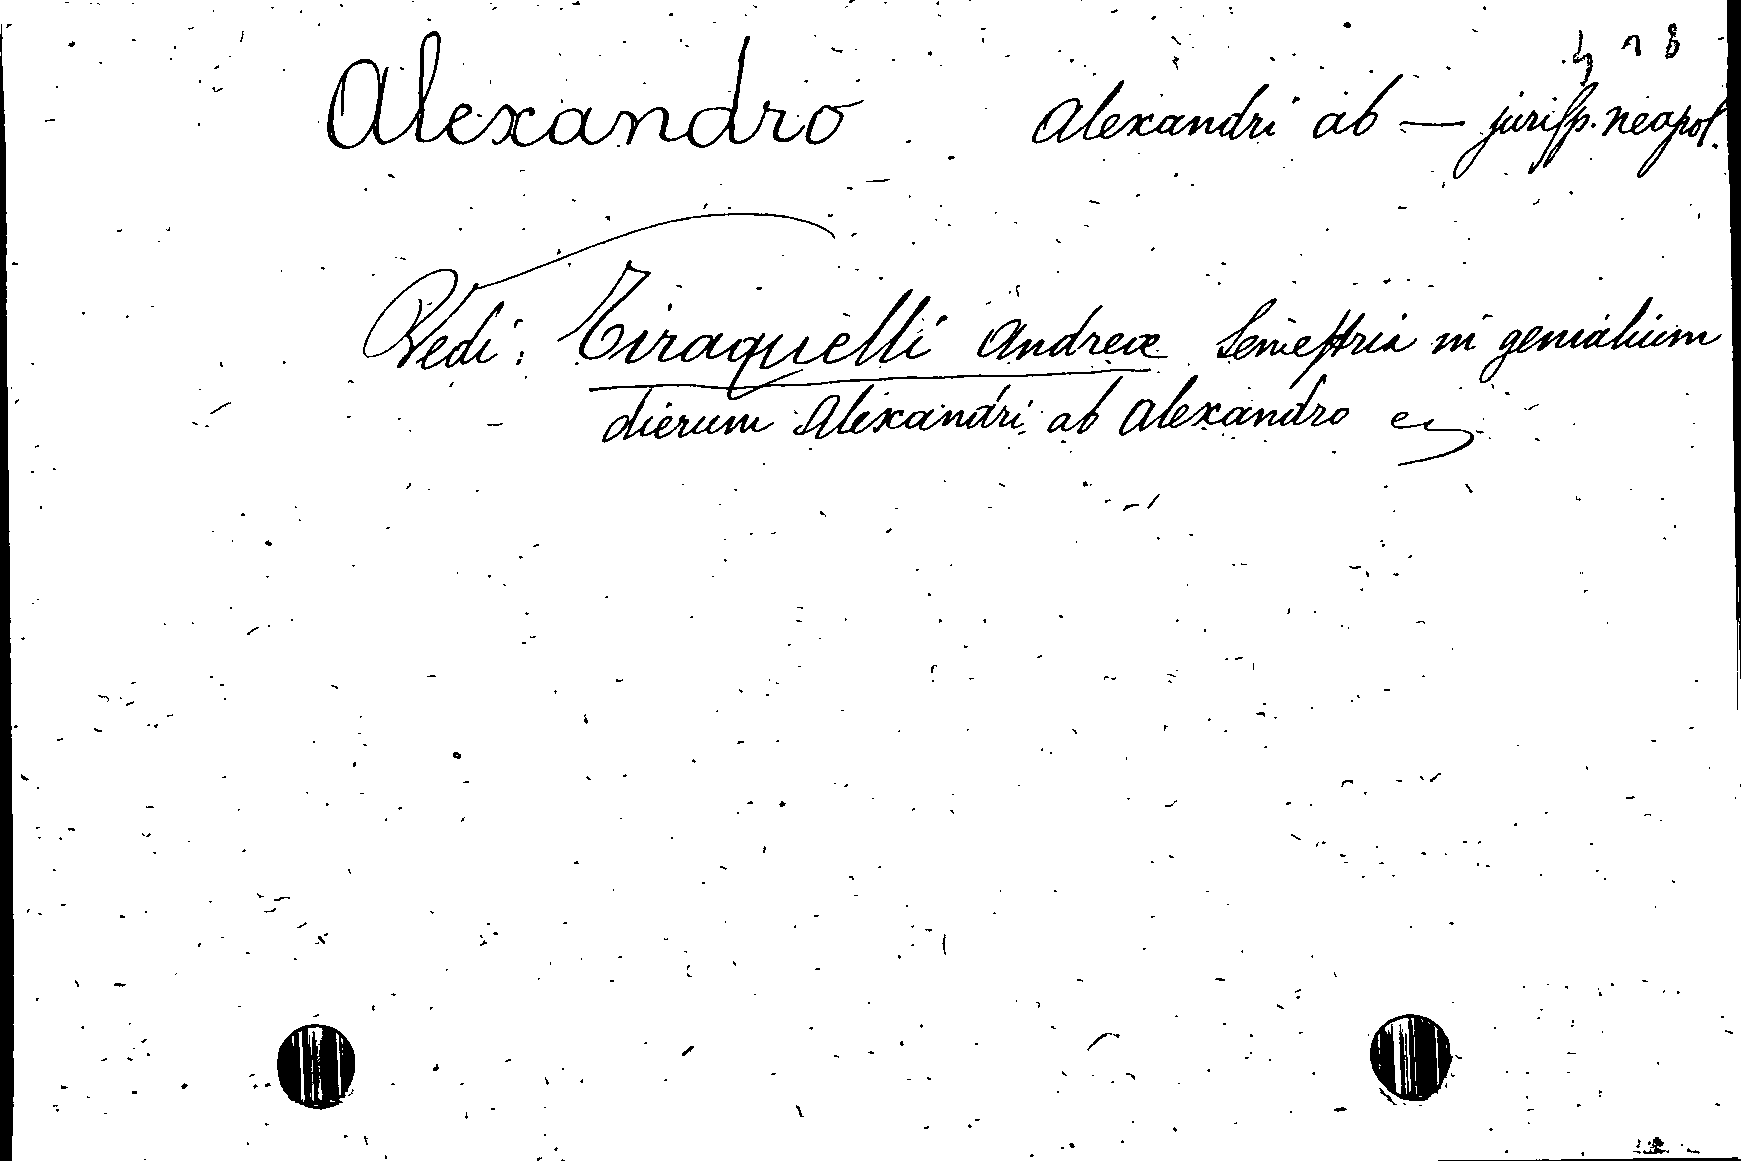 Alexandro Alexandri ab — jurissp. neapol.
Vedi: Tiraquelli Andreæ Semestria in genialium
dierum Alexandri ab Alexandro